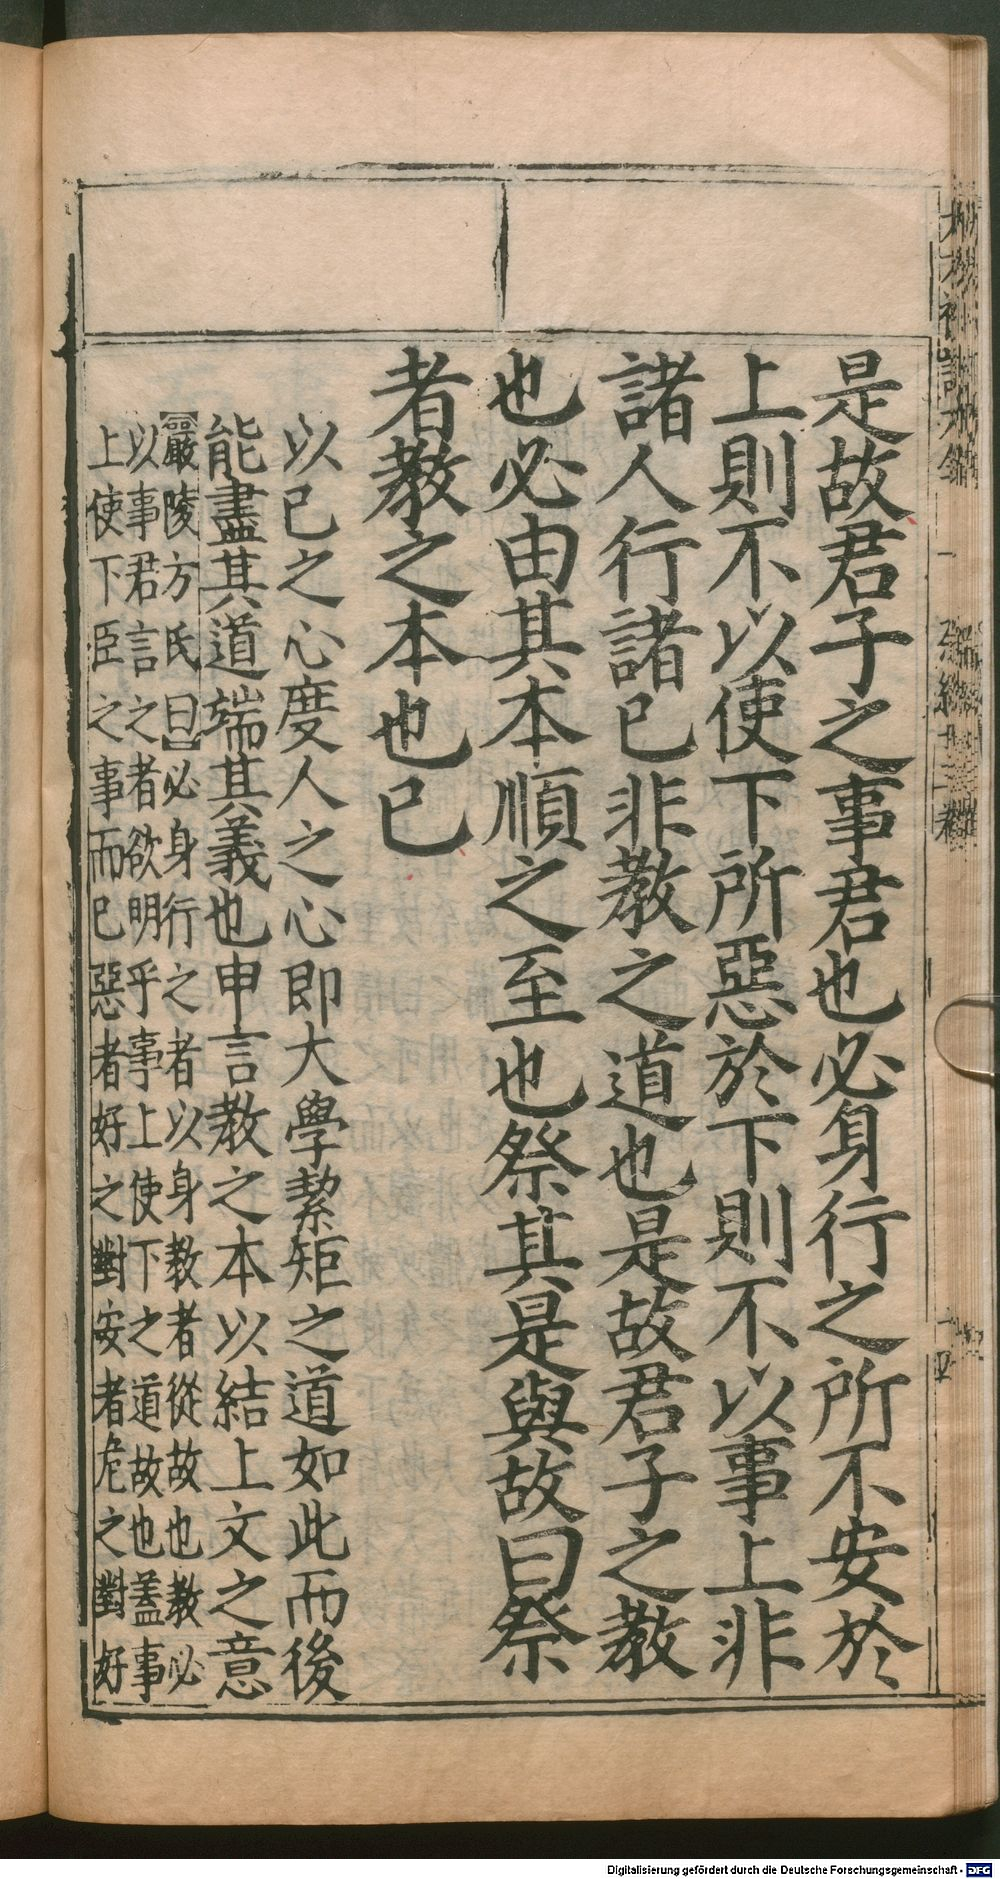 是故君子之事君也必身行之所不安於
上則不以使下所惡於下則不以事上非
諸人行諸已非教之道也是故君子之教
也必由其本順之至也祭其是與故曰祭
者教之本也已
以已之心度人之心即大學絜矩之道如此而後
能盡其道端其義也申言教之本以結上文之意
【嚴陵方氏曰】必身行之者以身教者從故也教必
以事君言之者欲明乎事上使下之道故也蓋事
上使下臣之事而已惡者好之對安者危之對好
Digitalisierung gefördert durch die Deutsche Forschungsgemeinschaft - DFG